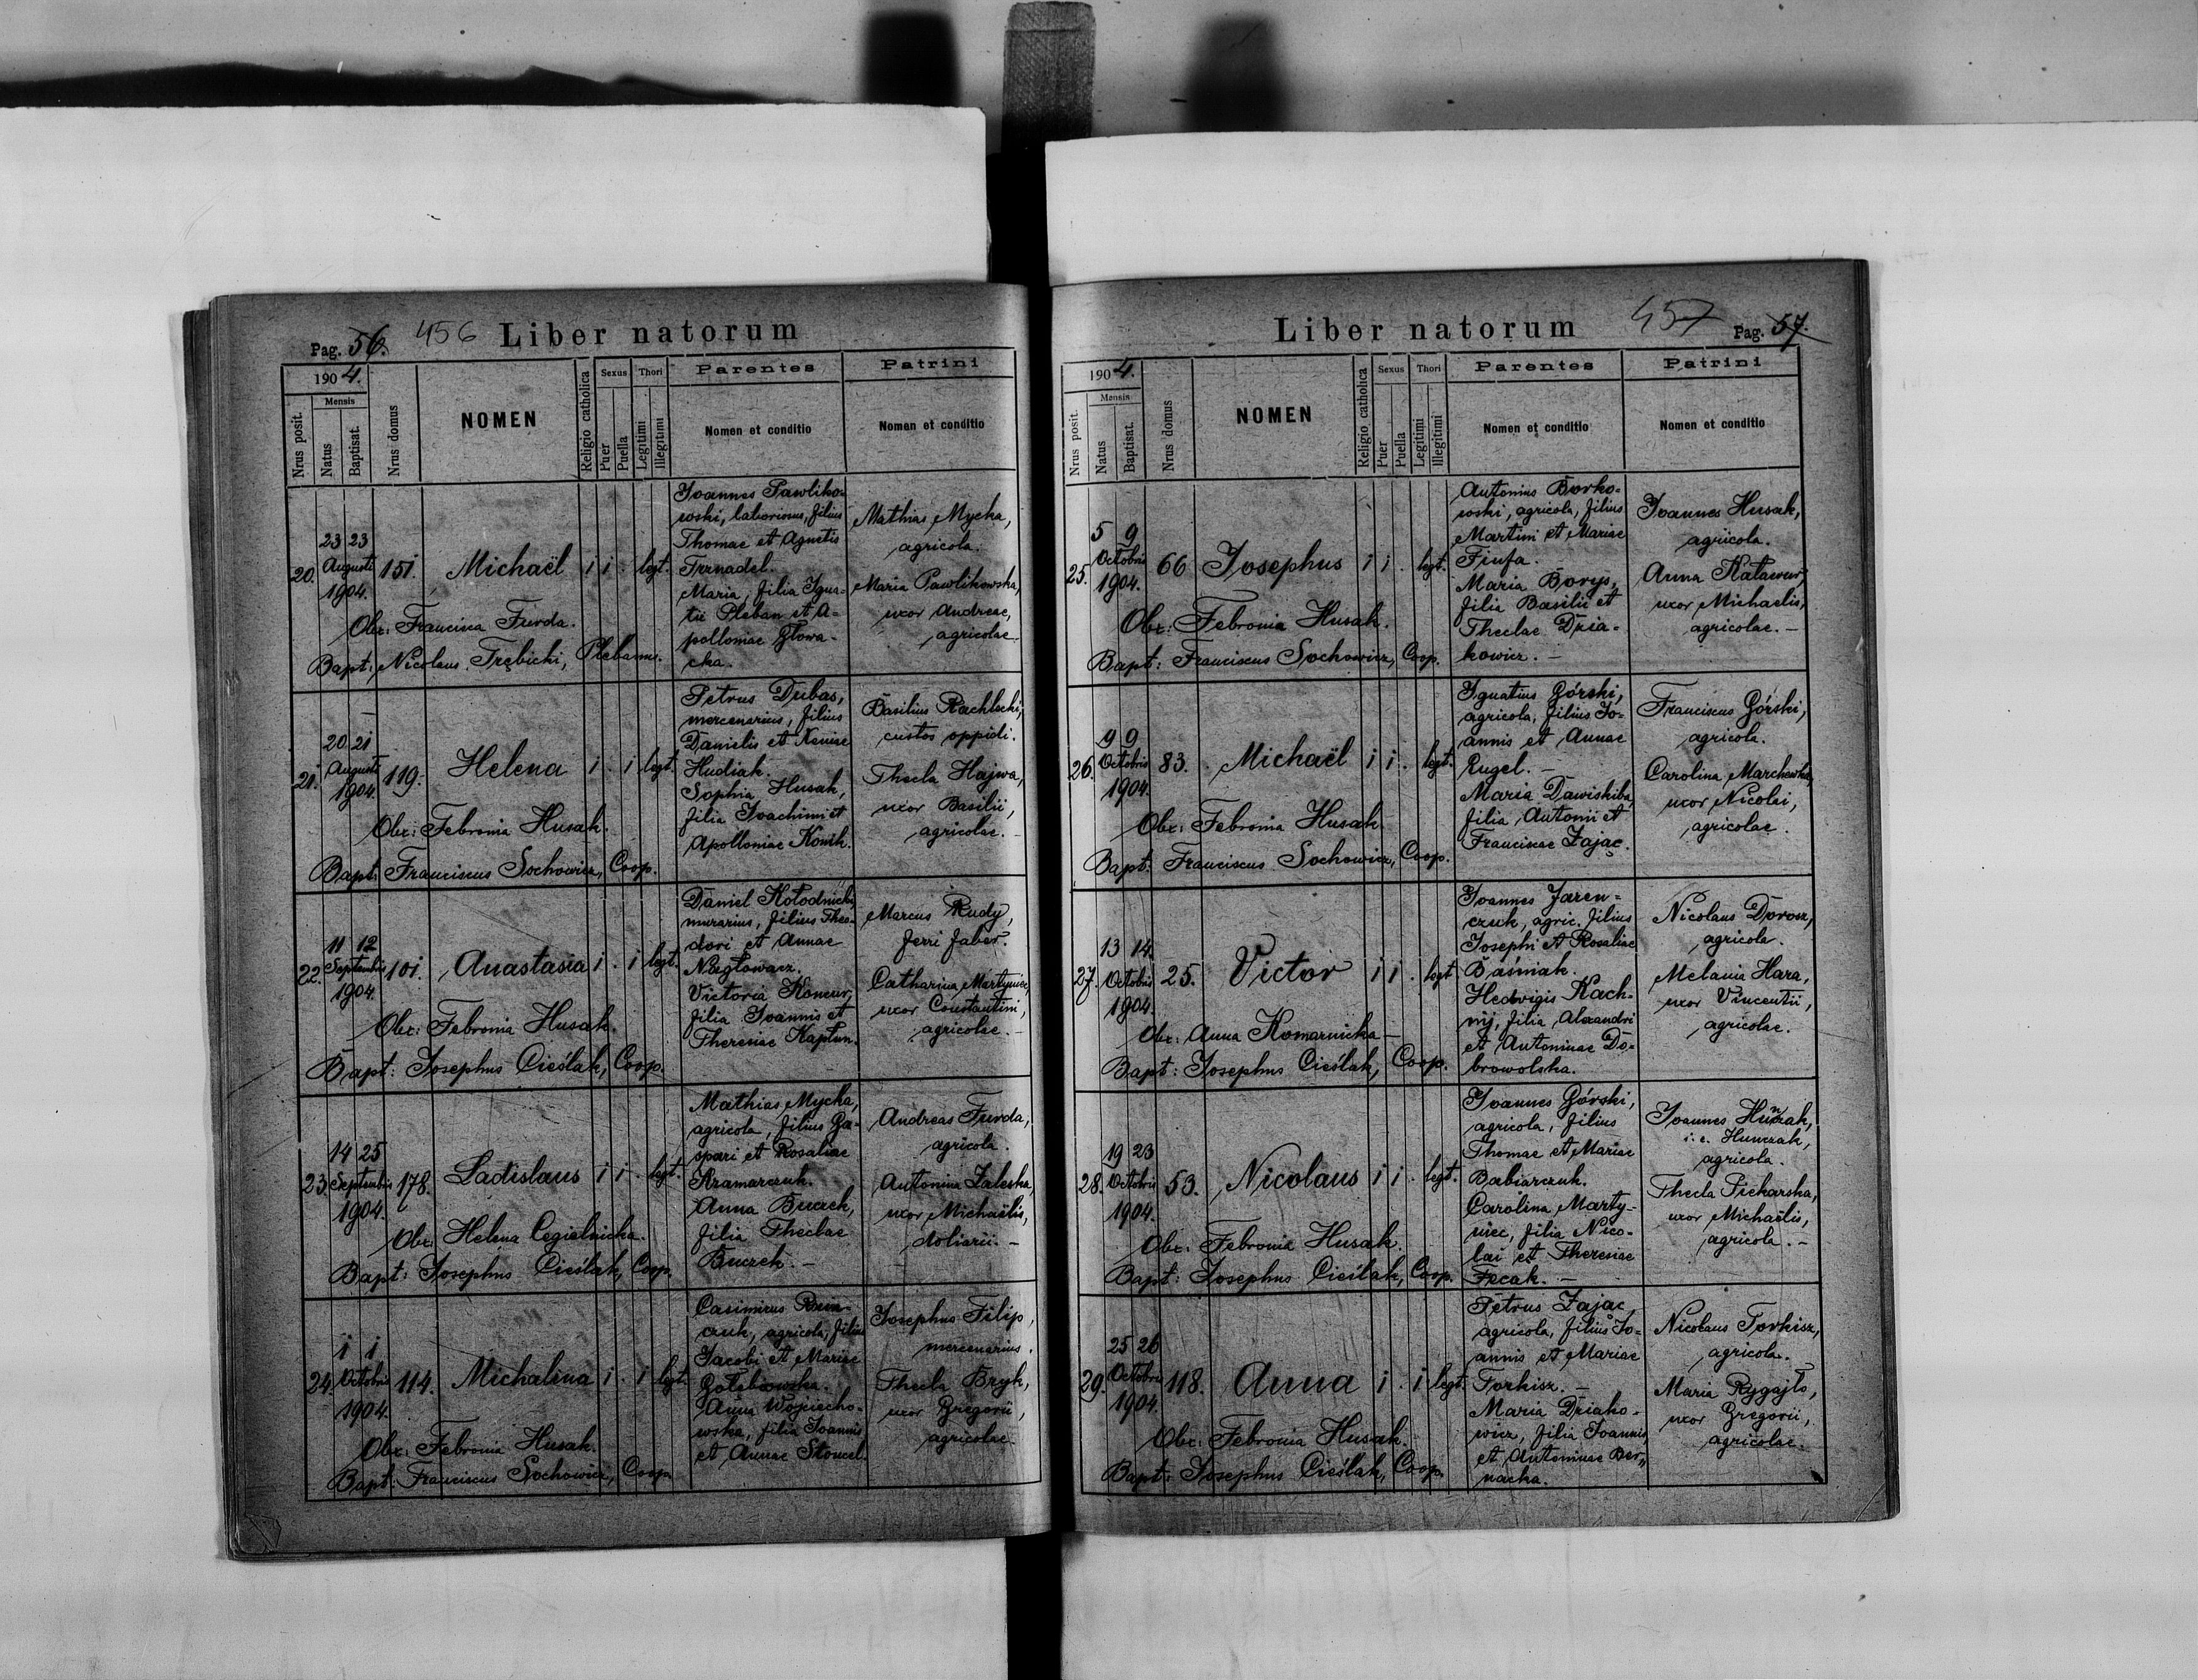 Pag. 56. 456 Liber natorum
1904.
Mensis
Nrus posit.
Natus
Baptisat.
Nrus domus
NOMEN
Religio catholica
Sexus
Puer
Puella
Thori
Legitimi
Illegitimi
Parentes
Nomen et conditio
Patrini
Nomen et conditio
20.
23 23
Augusti
1904.
151.
Michaël
i i . legt.
Obx: Francisca Furda.
Bapt: Nicolaus Trębicki, Plebanus.
Joannes Pawliko-
wski, laboriosus, filius
Thomae et Agnetis
Trznadel.
Maria, filia Igna-
tii Pleban et A-
polloniae Głowa-
cka.
Mathias Mycka,
agricola.
Maria Pawlikowska,
uxor Andreae,
agricolae.
21.
20 21
Augusti
1904.
119.
Helena
i . i legt.
Obx: Febronia Husak.
Bapt: Franciscus Sochowicz, Coop.
Petrus Dubas,
mercenarius, filius
Danielis et Xeniae
Hudiak.
Sophia Husak,
filia Joachimi et
Apolloniae Konik.
Basilius Rachlecki,
custos oppidi.
Thecla Hajwa,
uxor Basilii,
agricolae. -
22.
11 12
Septembris
1904.
101.
Anastasia
i . i legt.
Obx: Febronia Husak.
Bapt: Josephus Cieślak, Coop.
Daniel Kołodnicki,
murarius, filius Theo-
dori et Annae
Victoria Koncur,
filia Joannis et
Theresiae Kapłun.
Marcus Rudy,
ferri faber.
Catharina Martyniec,
uxor Constantini,
agricolae. -
23.
14 25
Septembris
1904.
178.
Ladislaus
i i . legt.
Obx: Helena Cegielnicka.
Bapt: Josephus Cieślak, Coop.
Mathias Mycka,
agricola, filius Ga-
spari et Rosaliae
Kramarczuk.
Anna Buczek,
filia Theclae
Buczek. -
Andreas Furda,
agricola.
Antonina Zaleska,
uxor Michaëlis,
doliarii. -
24.
1 1
Octobris
1904.
114.
Michalina
i . i legt.
Obx: Febronia Husak.
Bapt: Franciscus Sochowicz, Coop.
Casimirus
czuk, agricola, filius
Jacobi et Mariae
Gołębiowska.
Anna Wojciecho-
wska, filia Joannis
et Annae
Josephus Filip,
mercenarius.
Thecla Bryk,
uxor Gregorii,
agricolae.
Liber natorum 457 Pag. 57.
1904.
Mensis
Nrus posit.
Natus
Baptisat.
Nrus domus
NOMEN
Religio catholica
Sexus
Puer
Puella
Thori
Legitimi
Illegitimi
Parentes
Nomen et conditio
Patrini
Nomen et conditio
25.
5 9
Octobris
1904.
66
Josephus
i i . legt.
Obx: Febronia Husak.
Bapt: Franciscus Sochowicz, Coop.
Antonius Borko-
wski, agricola, filius
Martini et Mariae
Fiufa.
Maria Borys,
filia Basilii et
Theclae Dzia-
kowicz. -
Joannes Husak,
agricola.
Anna
uxor Michaelis,
agricolae. -
26.
9 9
Octobris
1904.
83.
Michaël
i i . legt.
Obx: Febronia Husak
Bapt: Franciscus Sochowicz, Coop.
Ignatius Górski,
agricola, filius Jo-
annis et Annae
Rugel. -
Maria Dawiskiba,
filia Antonii et
Franciscae Zając.
Franciscus Górski,
agricola.
Carolina Marchewka,
uxor Nicolai,
agricolae.
27.
13 14.
Octobris
1904.
25.
Victor
i i . legt
Obx: Anna Komarnicka -
Bapt: Josephus Cieślak, Coop.
Joannes Jaren-
czuk, agric. filius
Josephi et Rosaliae
Baśniak.
Hedwigis Rach-
nij, filia Alexandri
et Antoninae Do-
browolska.
Nicolaus Dorosz,
agricola.
Melania Hara,
uxor Vincentii,
agricolae.
28.
19 23
Octobris
1904.
53.
Nicolaus
i i . legt.
Obx: Febronia Husak.
Bapt: Josephus Cieślak, Coop.
Joannes Górski,
agricola, filius
Thomae et Mariae
Babiarczuk.
Carolina Marty-
niec, filia Nico-
lai et Theresiae
Fecak. -
Joannes Hunzak,
i. e. Hunczak,
agricola.
Thecla Piekarska,
uxor Michaëlis,
agricola. -
29.
25 26
Octobris
1904.
118.
Anna
i . i legt.
Obx: Febronia Husak.
Bapt: Josephus Cieślak, Coop.
Petrus Zając,
agricola, filius Jo-
annis et Mariae
Torkisz. -
Maria Dziako-
wicz, filia Joannis
et Antoninae Ber-
nacka.
Nicolaus Torkisz,
agricola.
Maria Rygajło,
uxor Gregorii,
agricolae.